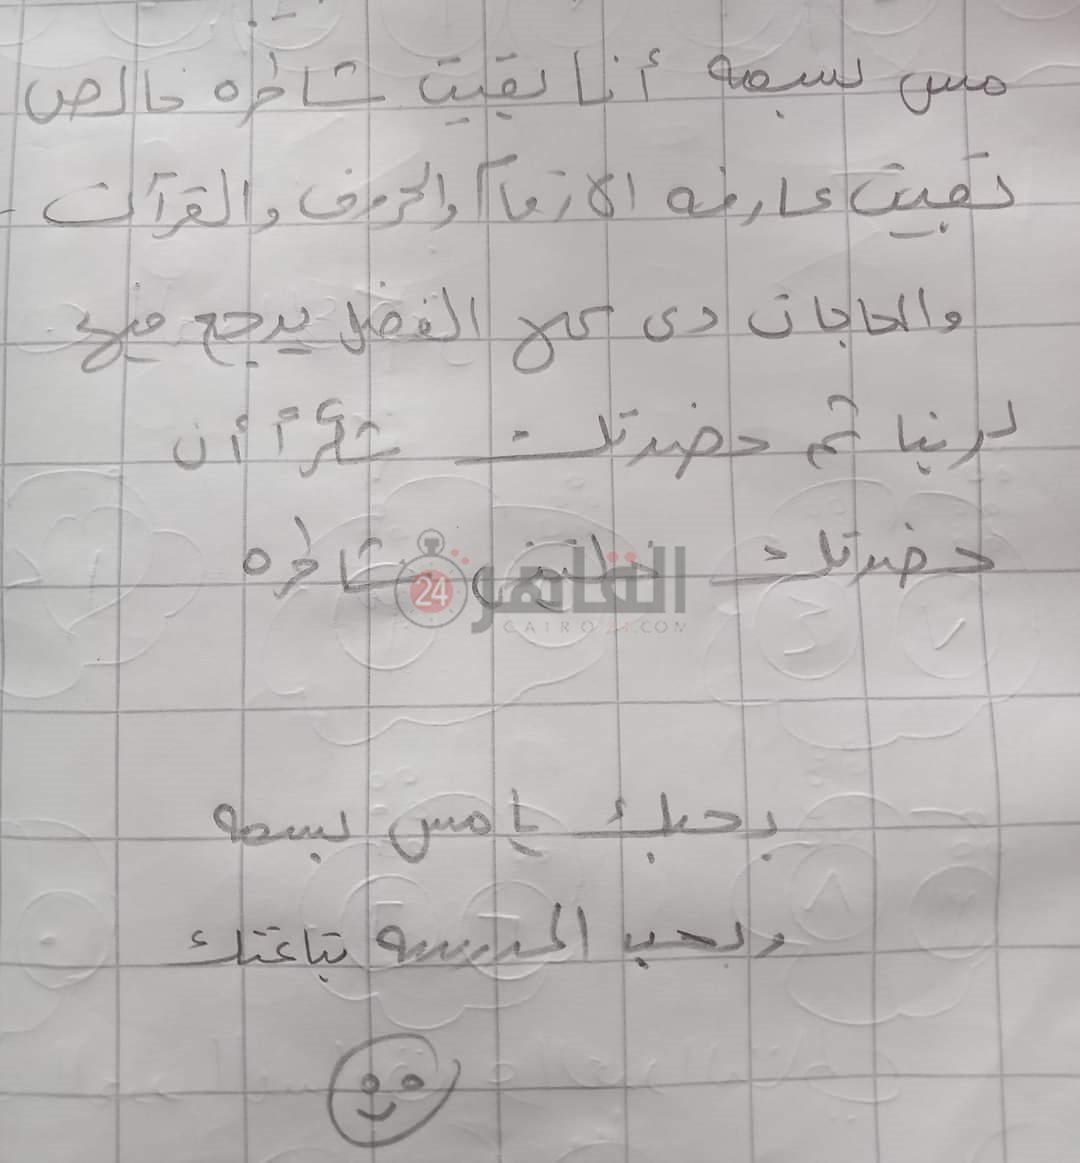 مس بسمه أنا بقيت شاطره خالص
بقيت عارفه الارقام والحروف والقرآن
والحاجات دى كل الفضل يرجع فيها
لربنا ثم حضرتك شكرأ أن
حضرتك خلتنى شاطره
القاهرة 24
CAIRO24.COM
بحبك يا مس بسمه
وبحب المدرسه بتاعتك